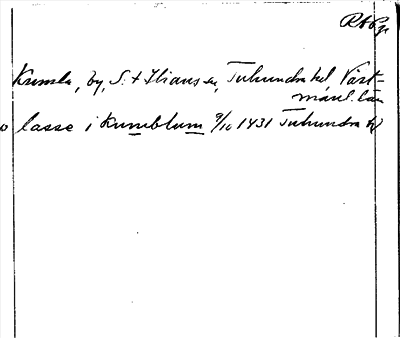 Kumla, by, S:t Ilians sn, Tuhundra hd Väst-
manl. län
o lasse i Kumblum 9/10 1431 Tuhundra hd